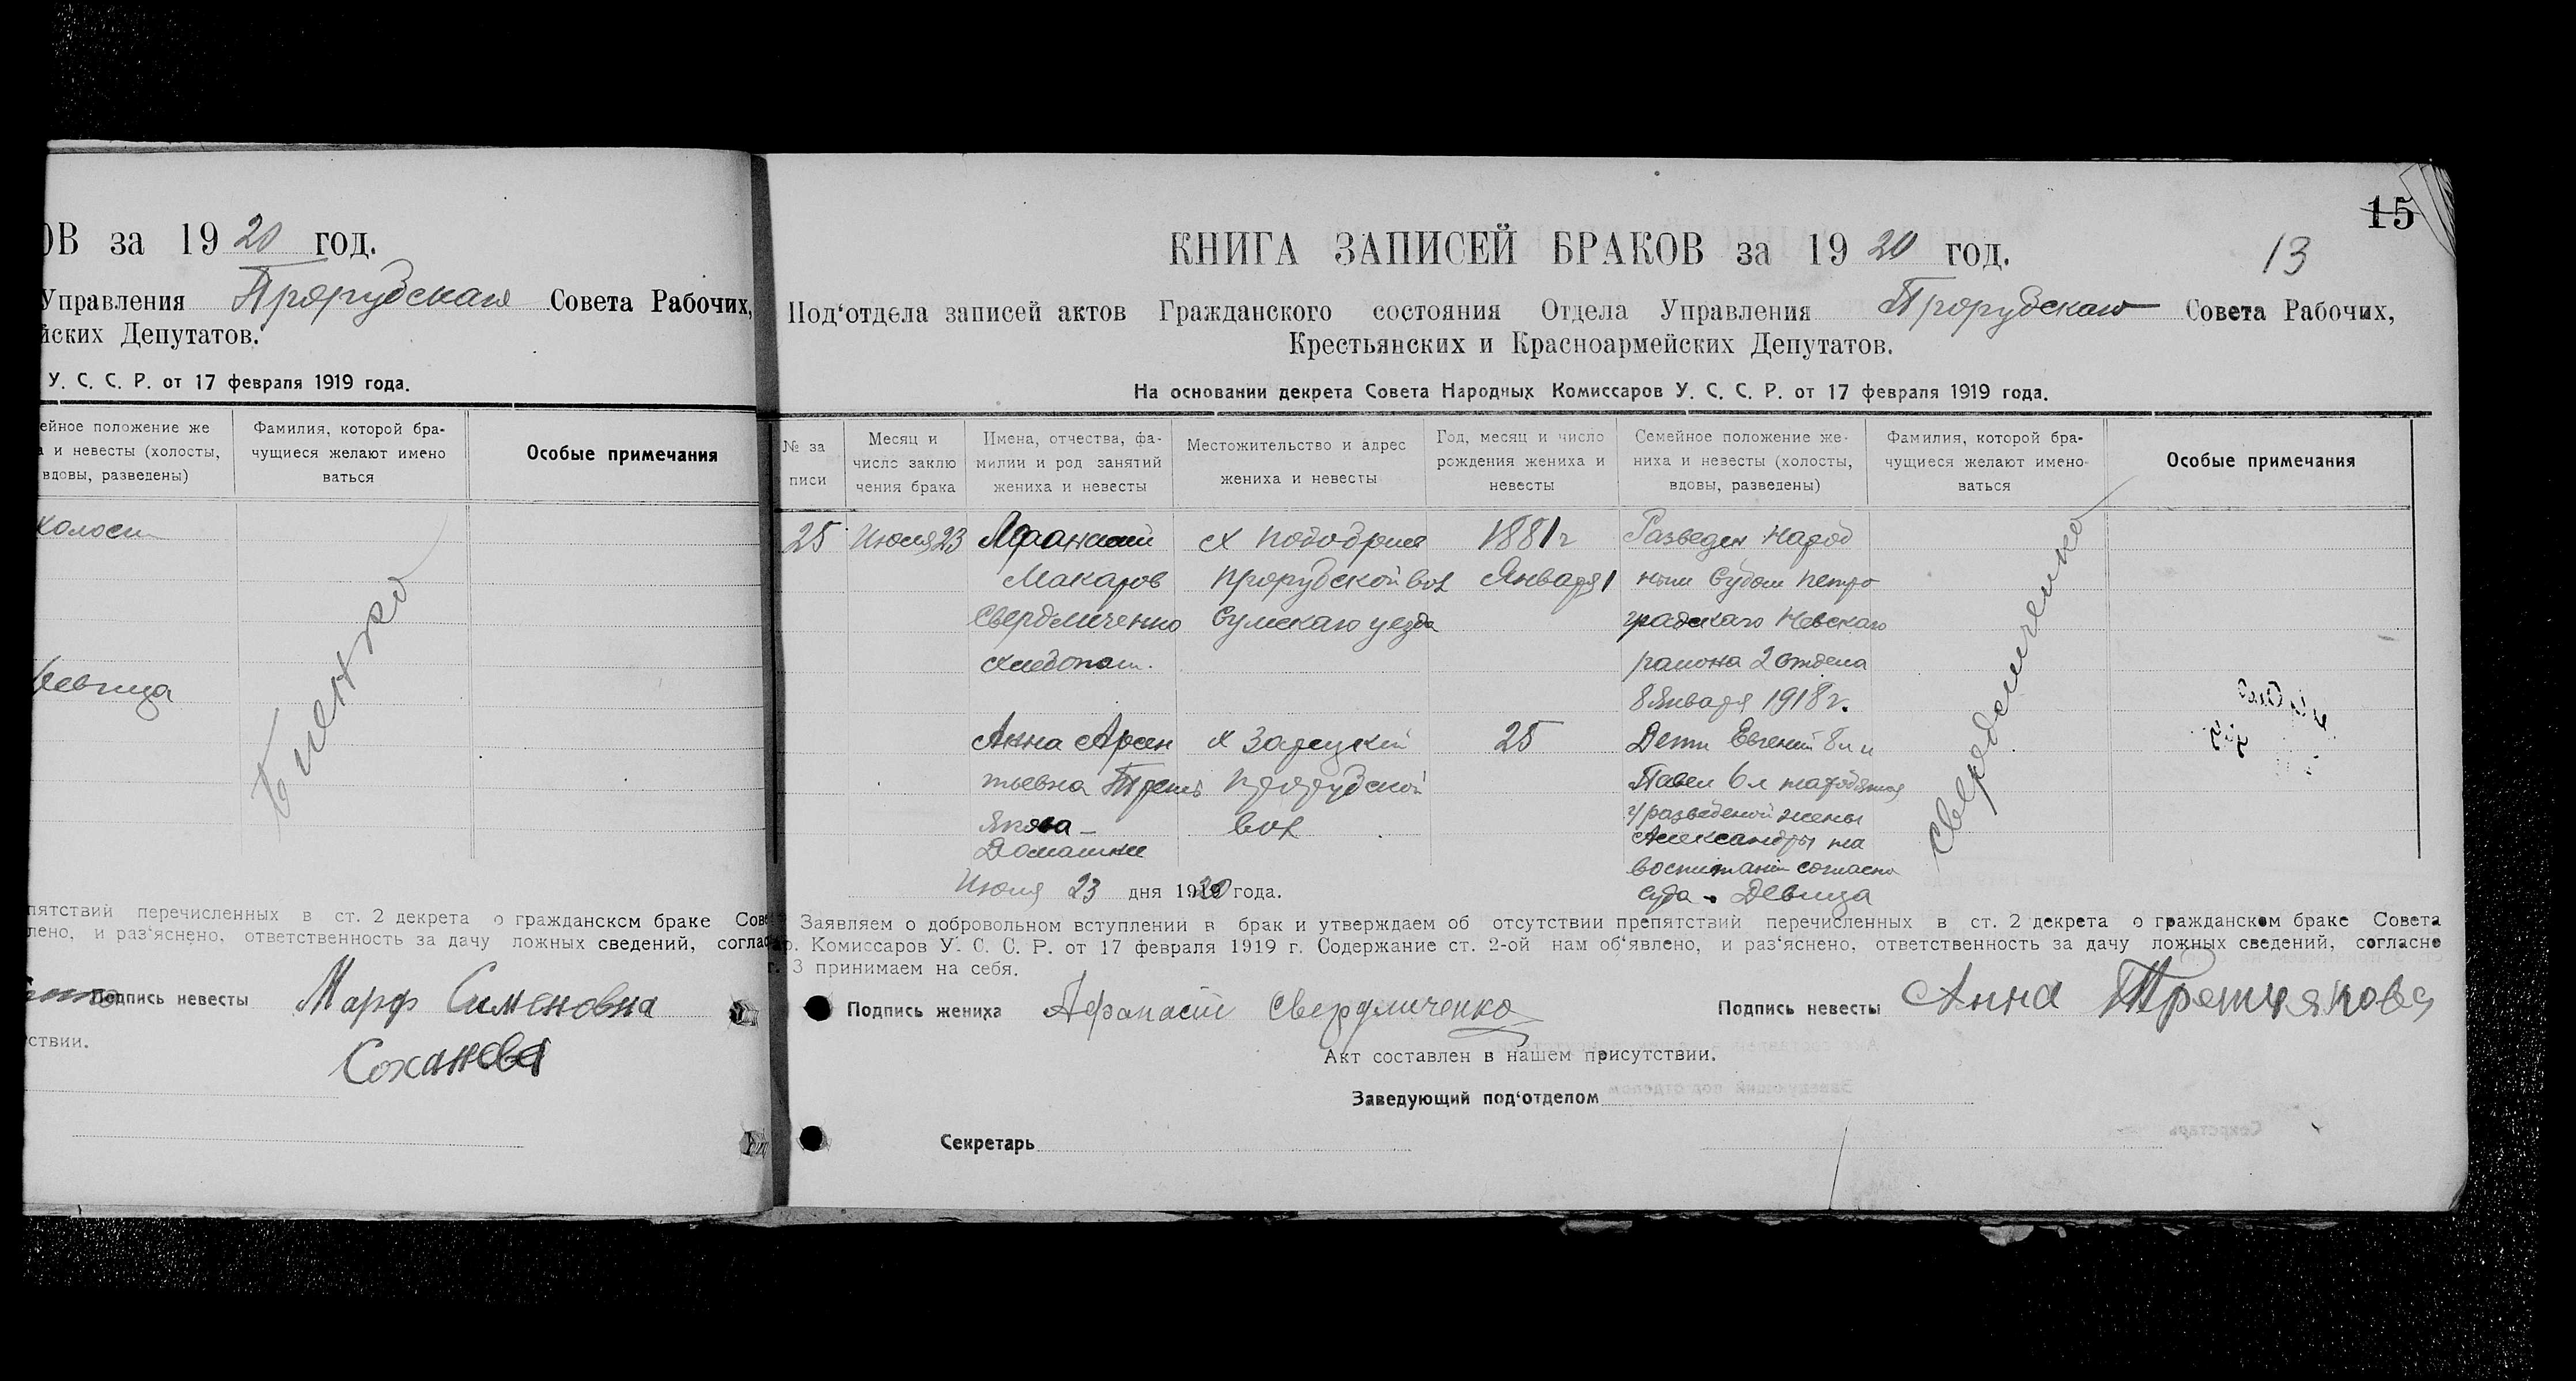 ОВ за 1920 год.
Управления Прорубскаго Совета Рабочих,
йских Депутатов.
У. С. С. Р. от 17 февраля 1919 года.
ейное положение же
а и невесты (холосты,
вдовы, разведены)
Фамилия, которой бра-
чущиеся желают имено
ваться
Особые примечания
холост
Девица
пятствий перечисленных в ст. 2 декрета о гражданском браке Сове
лено, и раз'яснено, ответственность за дачу ложных сведений, соглас
Подпись невесты Марф Сименовна
Соханева
ствии.
15
13
КНИГА ЗАПИСЕЙ БРАКОВ за 1920 год.
Под'отдела записей актов Гражданского состояния Отдела Управления Прорубскаго Совета Рабочих,
Крестьянских и Красноармейских Депутатов.
На основании декрета Совета Народных Комиссаров У. С. С. Р. от 17 февраля 1919 года.
№ за
писи
Месяц и
число заклю
чения брака
Имена, отчества, фа-
милии и род занятий
жениха и невесты
Местожительство и адрес
жениха и невесты
Год, месяц и число
рождения жениха и
невесты
Семейное положение же-
ниха и невесты (холосты,
вдовы, разведены)
Фамилия, которой бра-
чущиеся желают имено-
ваться
Особые примечания
25
Июня 23
Афанасий
Макаров
Свердличенко
хлебопаш.
Анна Арсен
тьевна Треть
якова -
Домашни
х
Прорубской вол
Сумскаго уезда
х Зарецкий
Прорубской
вол
1881 г
Января 1
25
Разведен Народ
ным Судом Петро
градскаго Невскаго
района 2 отдела
8 Января 1918 г.
Дети Евгений 8 л и
Павел 6 л находятся
у разведеной жены
Александры на
воспитании согласно
суда - Девица
Свердличенко
Июня 23 дня 1920 года.
Заявляем о добровольном вступлении в брак и утверждаем об отсутствии препятствий перечисленных в ст. 2 декрета о гражданском браке Совета
р. Комиссаров У. С. С. Р. от 17 февраля 1919 г. Содержание ст. 2-ой нам об'явлено, и раз'яснено, ответственность за дачу ложных сведений, согласно
г. 3 принимаем на себя.
Подпись жениха Афанасий Свердличенко
Подпись невесты Анна Третчякова
Акт составлен в нашем присутствии.
Заведующий под'отделом
Секретарь